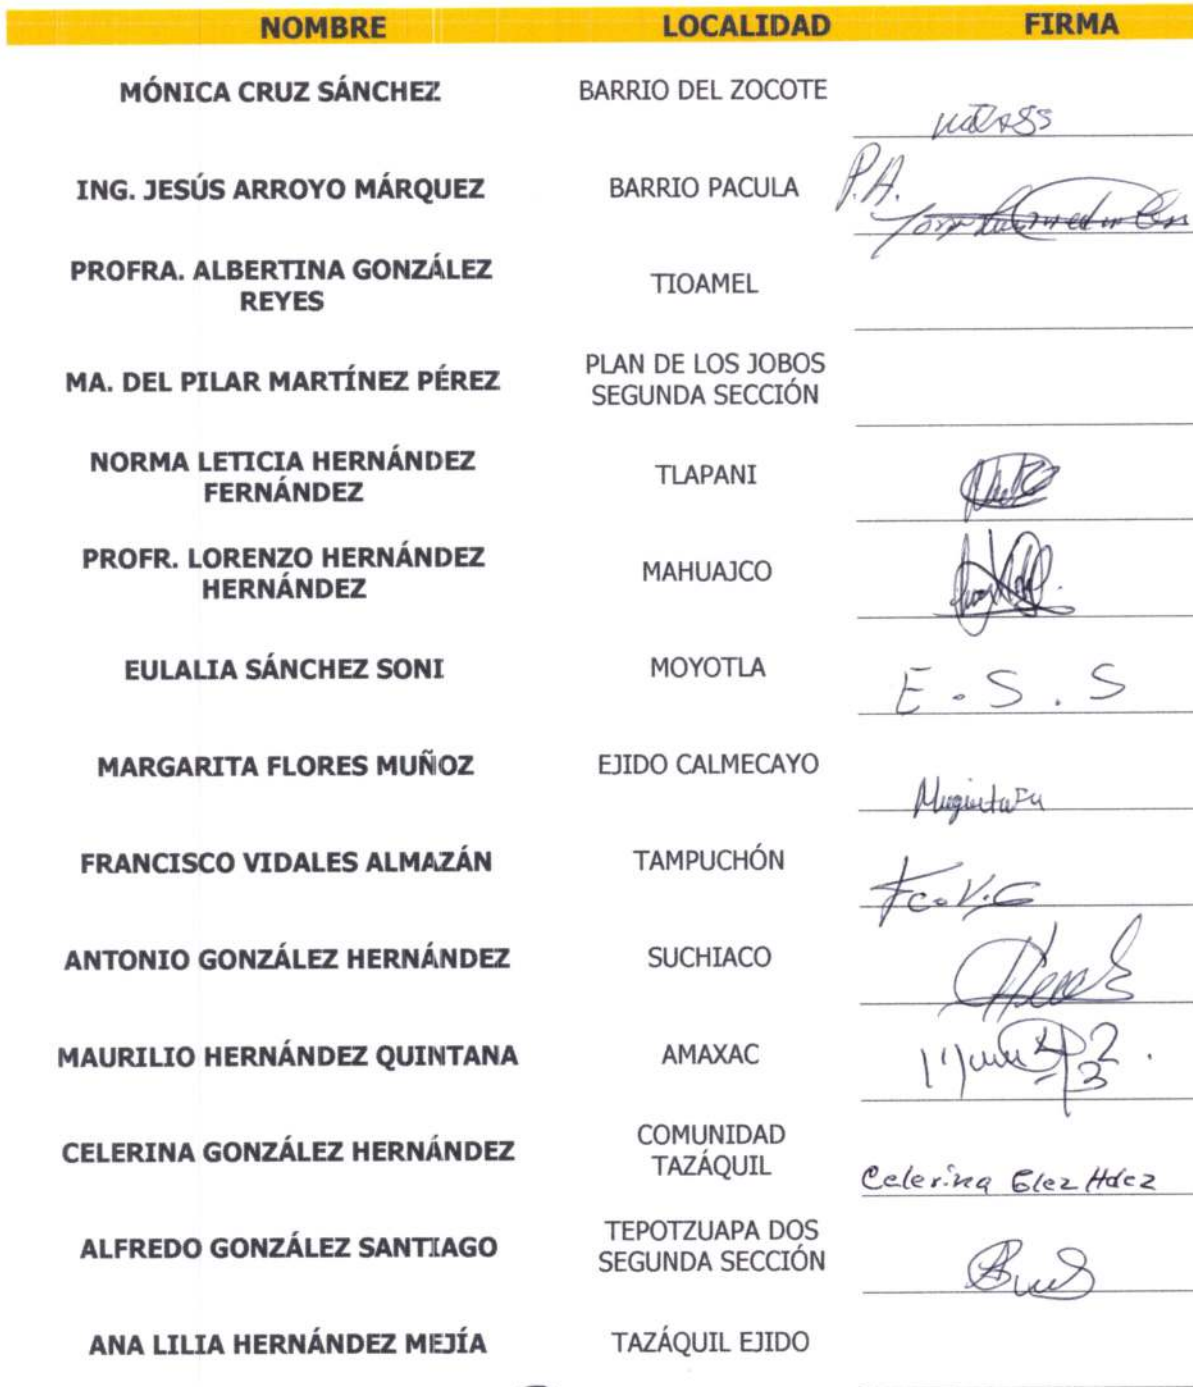 NOMBRE LOCALIDAD FIRMA
MÓNICA CRUZ SÁNCHEZ BARRIO DEL ZOCOTE
ING. JESÚS ARROYO MÁRQUEZ BARRIO PACULA P.A.
PROFRA. ALBERTINA GONZÁLEZ
REYES
TIOAMEL
MA. DEL PILAR MARTÍNEZ PÉREZ
PLAN DE LOS JOBOS
SEGUNDA SECCIÓN
NORMA LETICIA HERNÁNDEZ
FERNÁNDEZ
TLAPANI
PROFR. LORENZO HERNÁNDEZ
HERNÁNDEZ
MAHUAJCO
EULALIA SÁNCHEZ SONI MOYOTLA E.S.S
MARGARITA FLORES MUÑOZ EJIDO CALMECAYO
FRANCISCO VIDALES ALMAZÁN TAMPUCHÓN
ANTONIO GONZÁLEZ HERNÁNDEZ SUCHIACO
MAURILIO HERNÁNDEZ QUINTANA AMAXAC
CELERINA GONZÁLEZ HERNÁNDEZ
COMUNIDAD
TAZÁQUIL
Celerina Glez Hdez
ALFREDO GONZÁLEZ SANTIAGO
TEPOTZUAPA DOS
SEGUNDA SECCIÓN
ANA LILIA HERNÁNDEZ MEJÍA TAZÁQUIL EJIDO